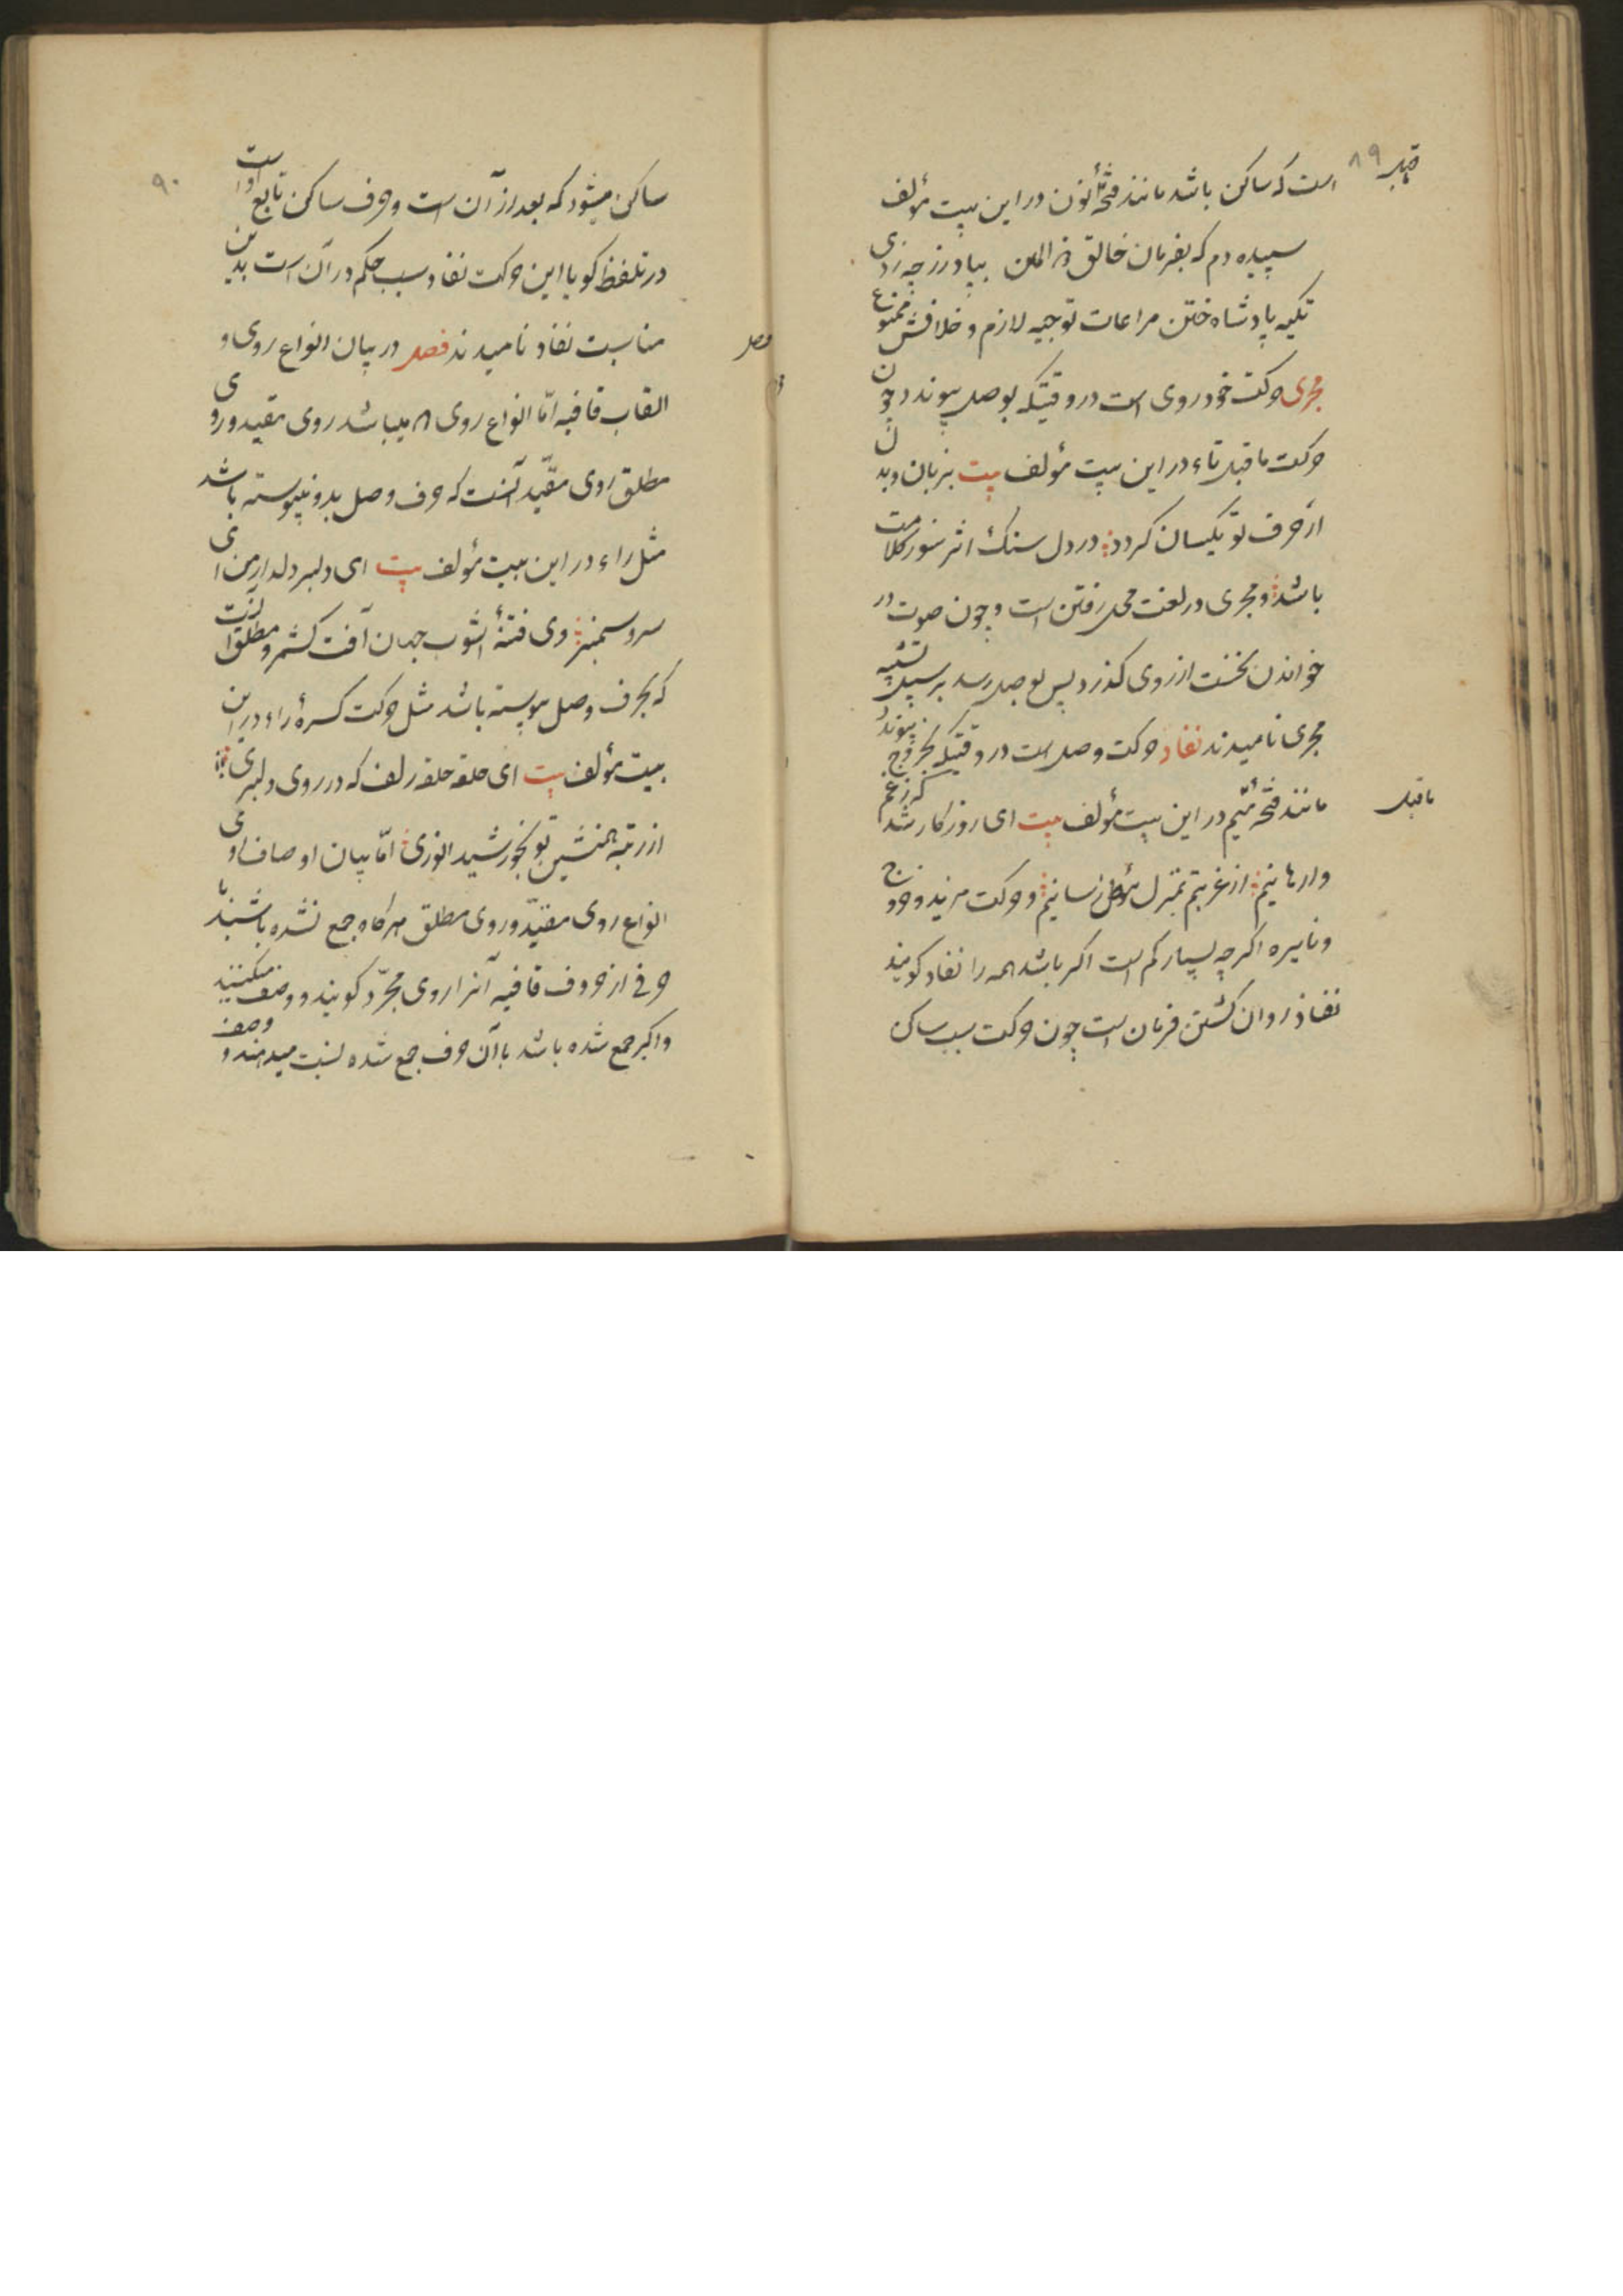 ۸۹
است که ساکن باشد مانند فتحهٔ نون در این بیت مؤلف
سپیده دم که بفرمان خالق ذو المنن بپا درز چه زدی
تکیه پادشاه ختن مراعات توجیه لازم و خلافش ممنوع
مجری حرکت خود روی است در وقتیکه بوصل پیوندد چون
حرکت ماقبل تاء در این بیت مؤلف بیت بزبان و بدن
از حرف تو یکسان کردد در دل سنک اثر سوز کلامت
باشد و مجری در لغت محل رفتن است و چون صوت در
خواندن نخست از روی کذرد پس بوصل رسد بر سبیل تشبیه
مجری نامیدند نفاد حرکت وصل است در وقتیکه بخروج پیوندد
مانند فتحهٔ میم در این بیت مؤلف بیت ای روز کار شد که ز غم
ماقبل
وارهانیم از غربتم بمنزل رسانیم و حرکت مزید و خروج
و نایره اکرچه بسیار کم است اکر باشد همه را نفاد کویند
نفاذ روان کشتن فرمان است چون حرکت سبب ساکن
۹۰
ساکن میشود که بعد از آن است و حرف ساکن تابع او است
در تلفظ کویا این حرکت نفاد سبب حکم در آن است بدین
مناسبت نفاد نامیدند فصل در بیان انواع روی و
فصل
القاب قافیه امّا انواع روی ۲ میباشد روی مقید و روی
مطلق روی مقیّد آنست که حرف وصل بدو نپیوسته باشد
مثل راء در این بیت مؤلف بیت ای دلبر دلدار من ای
سرو سمنبر وی فتنهٔ آشوب جهان آفت کشمر و مطلق آنست
که بحرف وصل پیوسته باشد مثل حرکت کسرهٔ راء در این
بیت مؤلف بیت ای حلقه حلقه زلف که در روی دلبری
از رتبه همنشین تو بخورشید انوری امّا بیان اوصاف روی
انواع روی مقیّد و روی مطلق هرکاه جمع نشده باشند با
حرفی از حروف قافیه آنرا روی مجرّد کویند و وصف میکنند
و اکر جمع شده باشد با آن حرف جمع شده نسبت میدهند و وصف